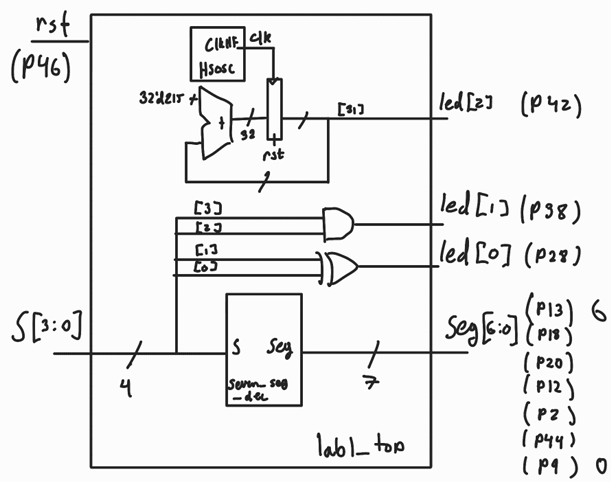 rst
(P46)
clk
ClkHF
HSOSC
32'd215
+
32
rst
[31]
led[2] (P42)
[3]
[2]
led[1] (P38)
[1]
[0]
led[0] (P28)
S[3:0]
4
S Seg
Seven_seg
_dec
7
Seg[6:0]
(P13) 6
(P18)
(P20)
(P12)
(P2)
(P44)
(P9) 0
lab1_top